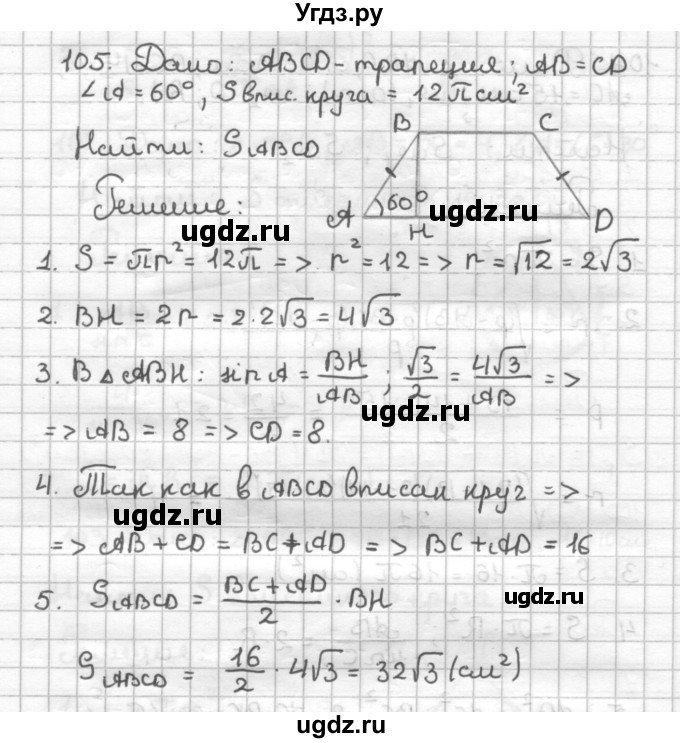 Угдз.ру
105. Дано: ABCD - трапеция; AB = CD
∠A = 60°, S впис. круга = 12π см²
Найти: S ABCD
B C
Решение:
60°
A H D
udgz.com
ugdz.com
1. S = πr² = 12π => r² = 12 => r = √12 = 2√3
2. BH = 2r = 2·2√3 = 4√3
3. В △ABH: sin A = BH/AB ; √3/2 = 4√3/AB =>
ugdz.com
=> AB = 8 => CD = 8.
4. Так как в ABCD вписан круг =>
ugdz.com
=> AB + CD = BC + AD => BC + AD = 16
5. S ABCD = (BC + AD)/2 · BH
ugdz.com
S ABCD = 16/2 · 4√3 = 32√3 (см²)
ugdz.com